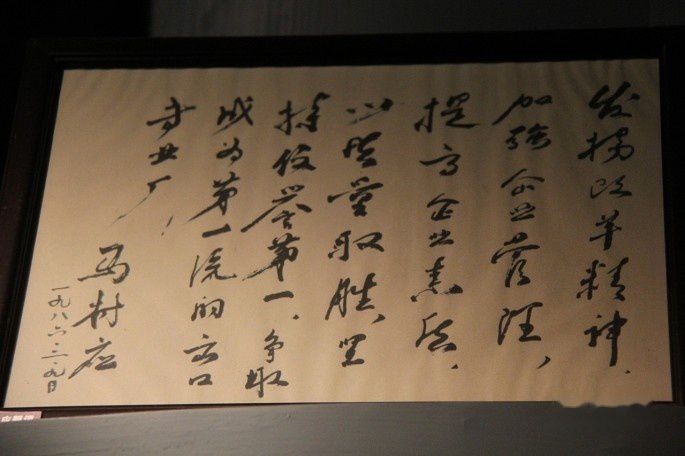 发扬改革精神、
加强企业管理，
提高企业素质，
以质量取胜，坚
持信誉第一、争取
成为第一流的出口
专业厂！
一九八六.三.九日